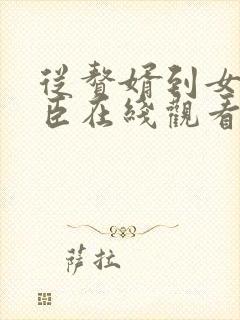 從贅婿到女
臣在綫觀看
萨拉